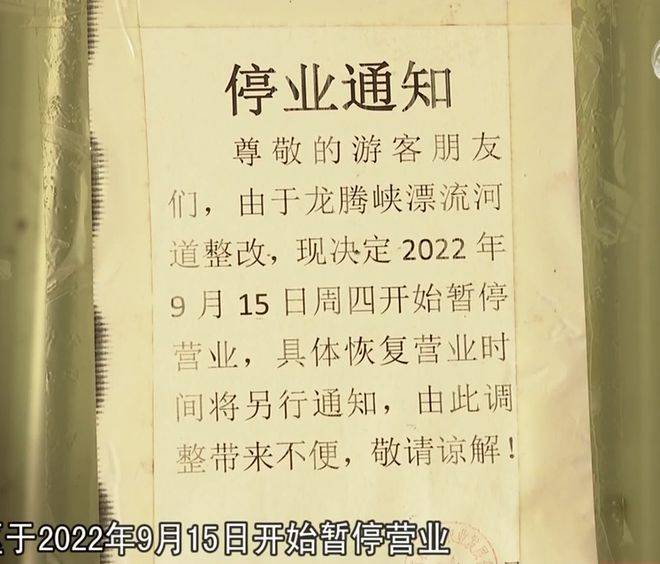 停业通知
尊敬的游客朋友
们，由于龙腾峡漂流河
道整改，现决定2022年
9月15日周四开始暂停
营业，具体恢复营业时
间将另行通知，由此调
整带来不便，敬请谅解！
于2022年9月15日开始暂停营业